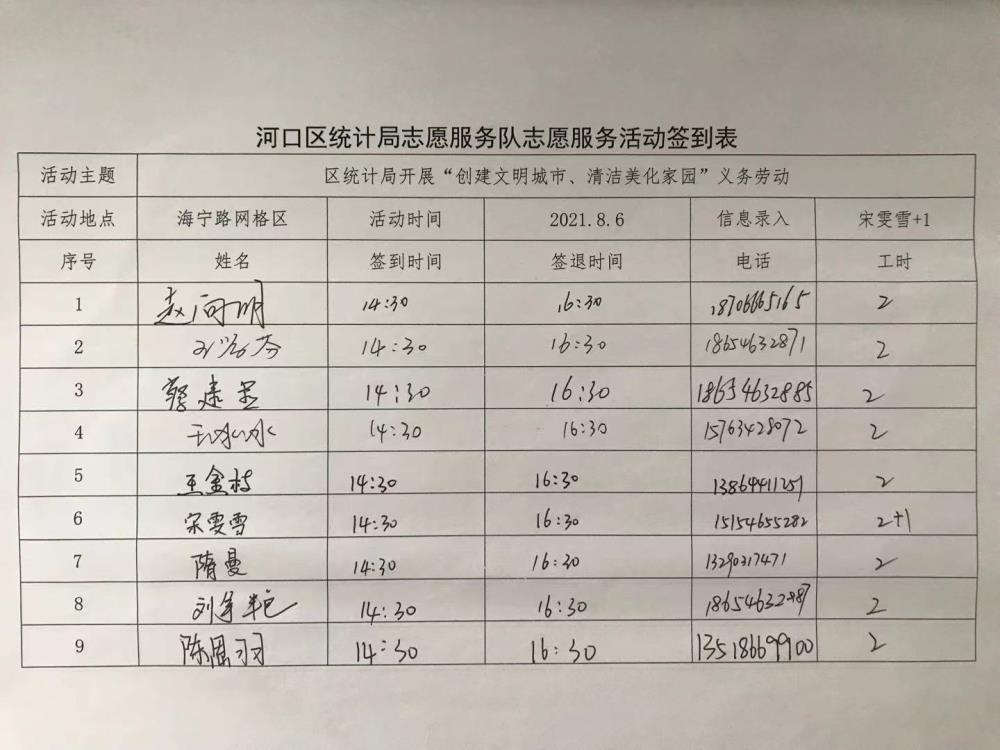 河口区统计局志愿服务队志愿服务活动签到表
活动主题 区统计局开展“创建文明城市、清洁美化家园”义务劳动
活动地点 海宁路网格区 活动时间 2021.8.6 信息录入 宋雯雪+1
序号 姓名 签到时间 签退时间 电话 工时
1 赵向明 14:30 16:30 18706665165 2
2 14:30 16:30 18654632871 2
3 蔡建 14:30 16:30 18654632885 2
4 14:30 16:30 15763428072 2
5 王金枝 14:30 16:30 13864411251 2
6 宋雯雪 14:30 16:30 15154655282 2+1
7 隋曼 14:30 16:30 13290317471 2
8 刘 14:30 16:30 18654632887 2
9 陈 羽 14:30 16:30 13518669900 2